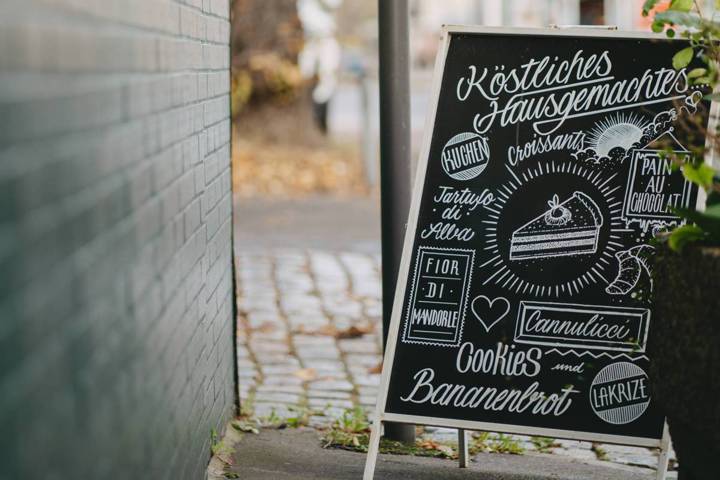 Köstliches
Hausgemachtes
KUCHEN
Croissants
PAIN
AU
CHOCOLAT
Tartufo
di
Alba
FIOR
DI
MANDORLE
Cannulicci
Cookies und
Bananenbrot
LAKRIZE